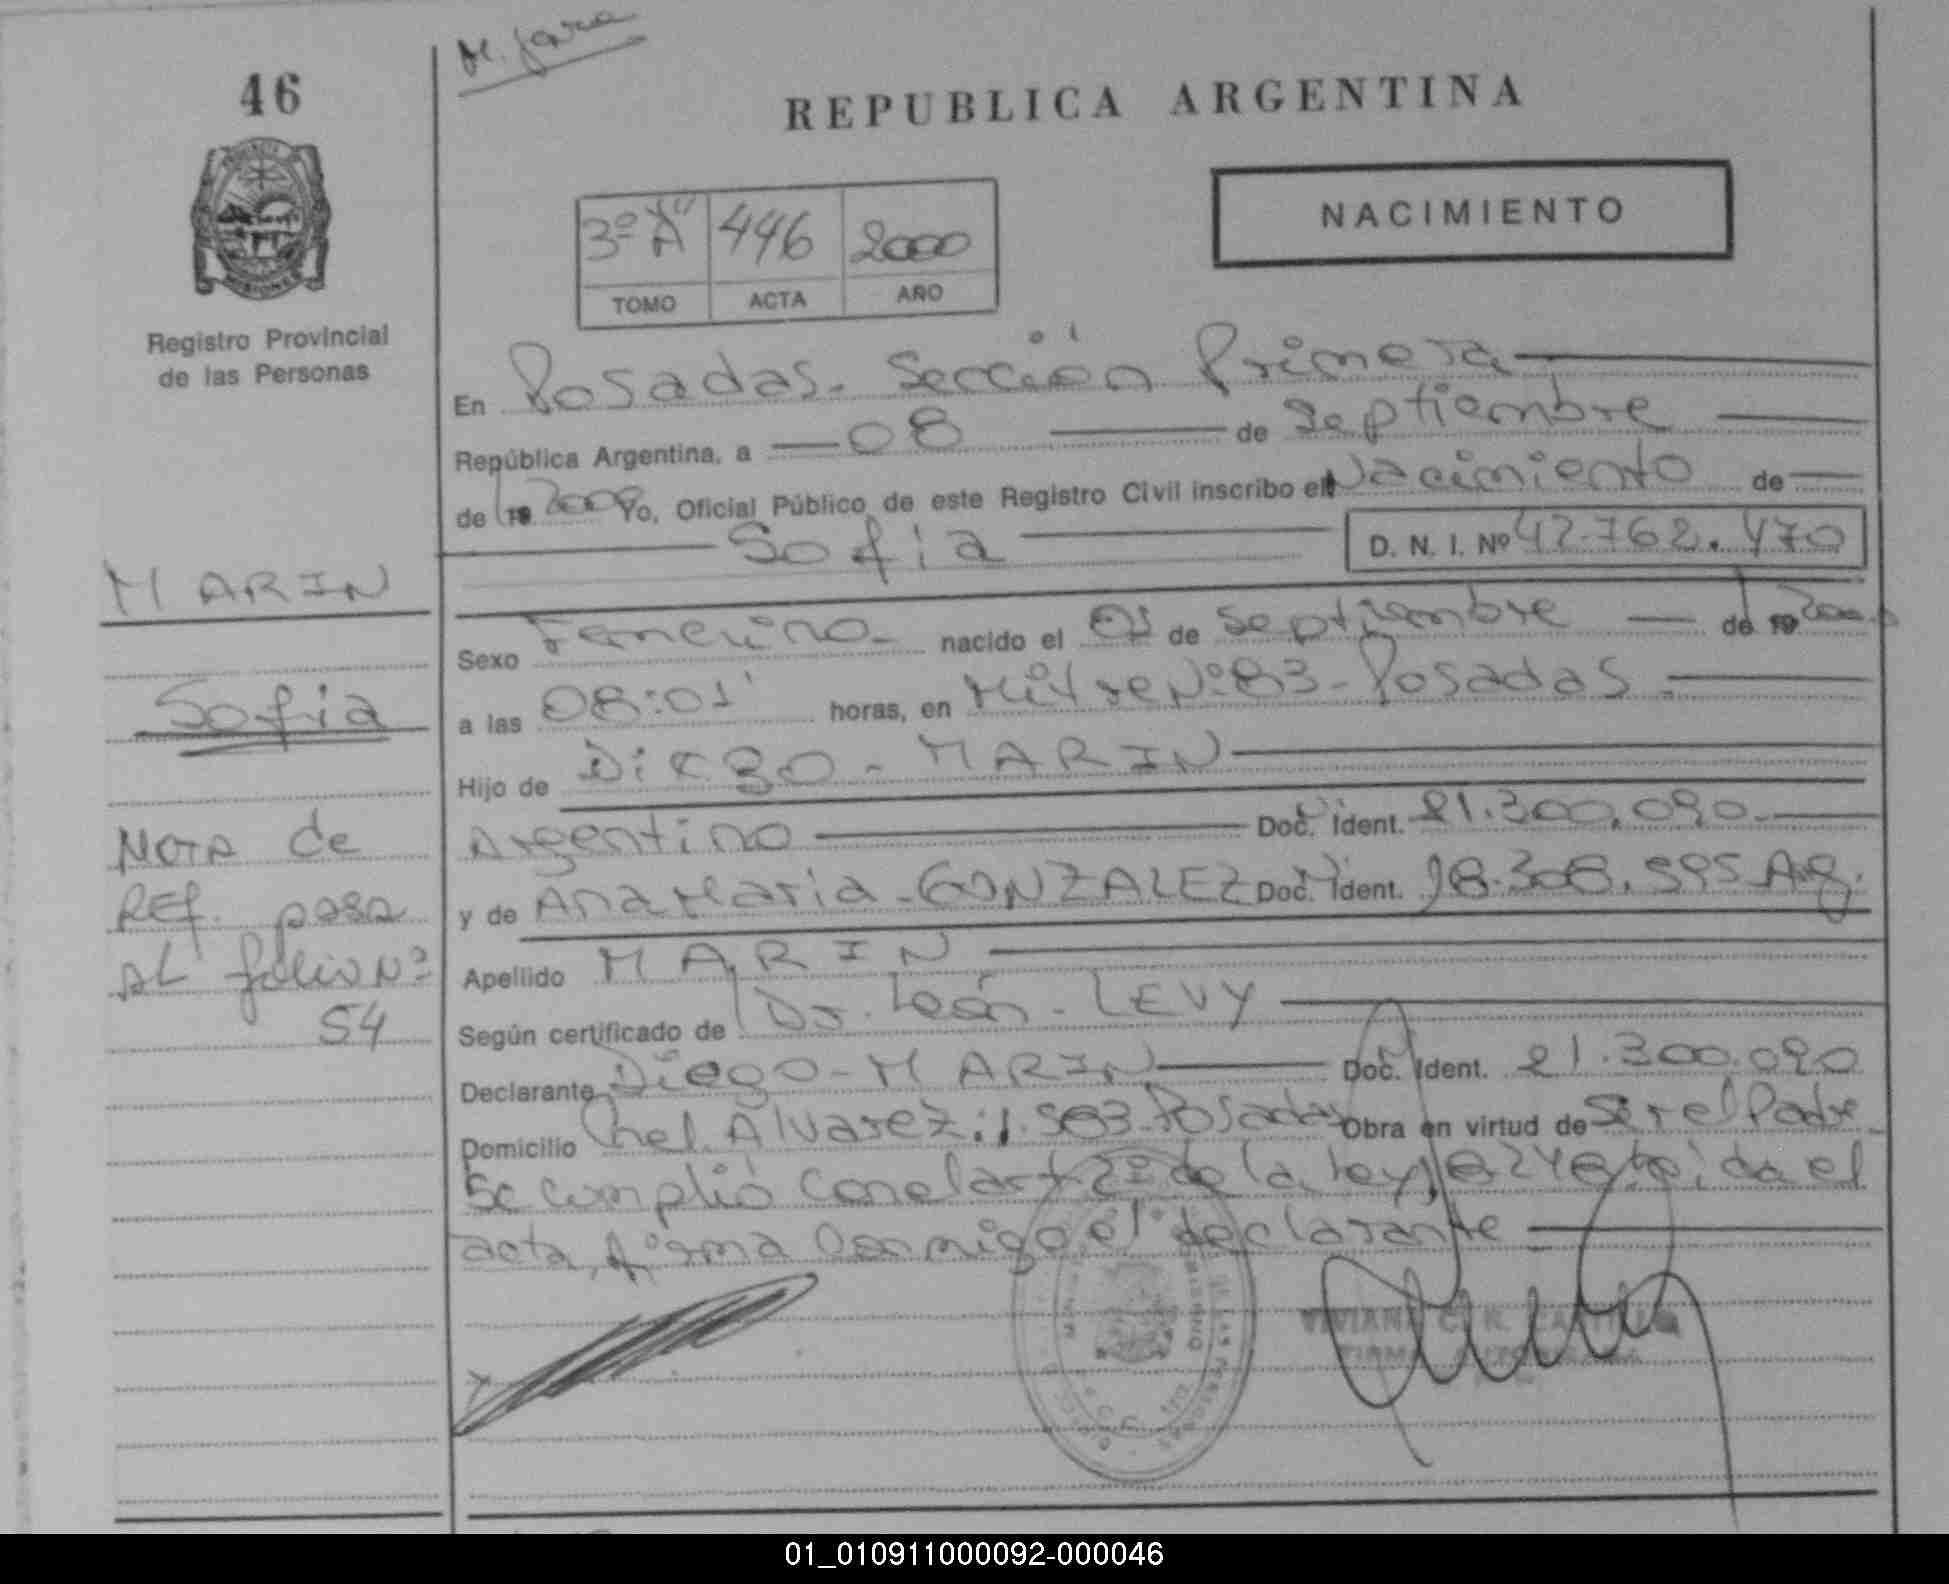 46
REPUBLICA ARGENTINA
NACIMIENTO
3º A 446 2000
TOMO ACTA AÑO
Registro Provincial
de las Personas
En Posadas. Sección Primera
República Argentina, a 08 de Septiembre
de 19 2000 Yo, Oficial Público de este Registro Civil inscribo el Nacimiento de
Sofia D. N. I. Nº 42.762.470
MARIN
Sexo Femenino nacido el 01 de Septiembre de 19 2000
Sofia
a las 08:01' horas, en Mitre Nº 83 - Posadas
Hijo de Diego - MARIN
Argentino Doc. Ident. 21.300.090
y de Ana Maria - GONZALEZ Doc. Ident. 18.308.595 Arg.
NOTA de
REf. pasa
AL folio Nº
54
Apellido MARIN
Según certificado de Dr. León - LEVY
Declarante Diego - MARIN Doc. Ident. 21.300.090
Domicilio Cnel. Alvarez: 1.583 Posadas Obra en virtud de Ser el Padre
Se cumplió con el art 2º de la ley leida el
acta, firma conmigo el declarante
01_010911000092-000046